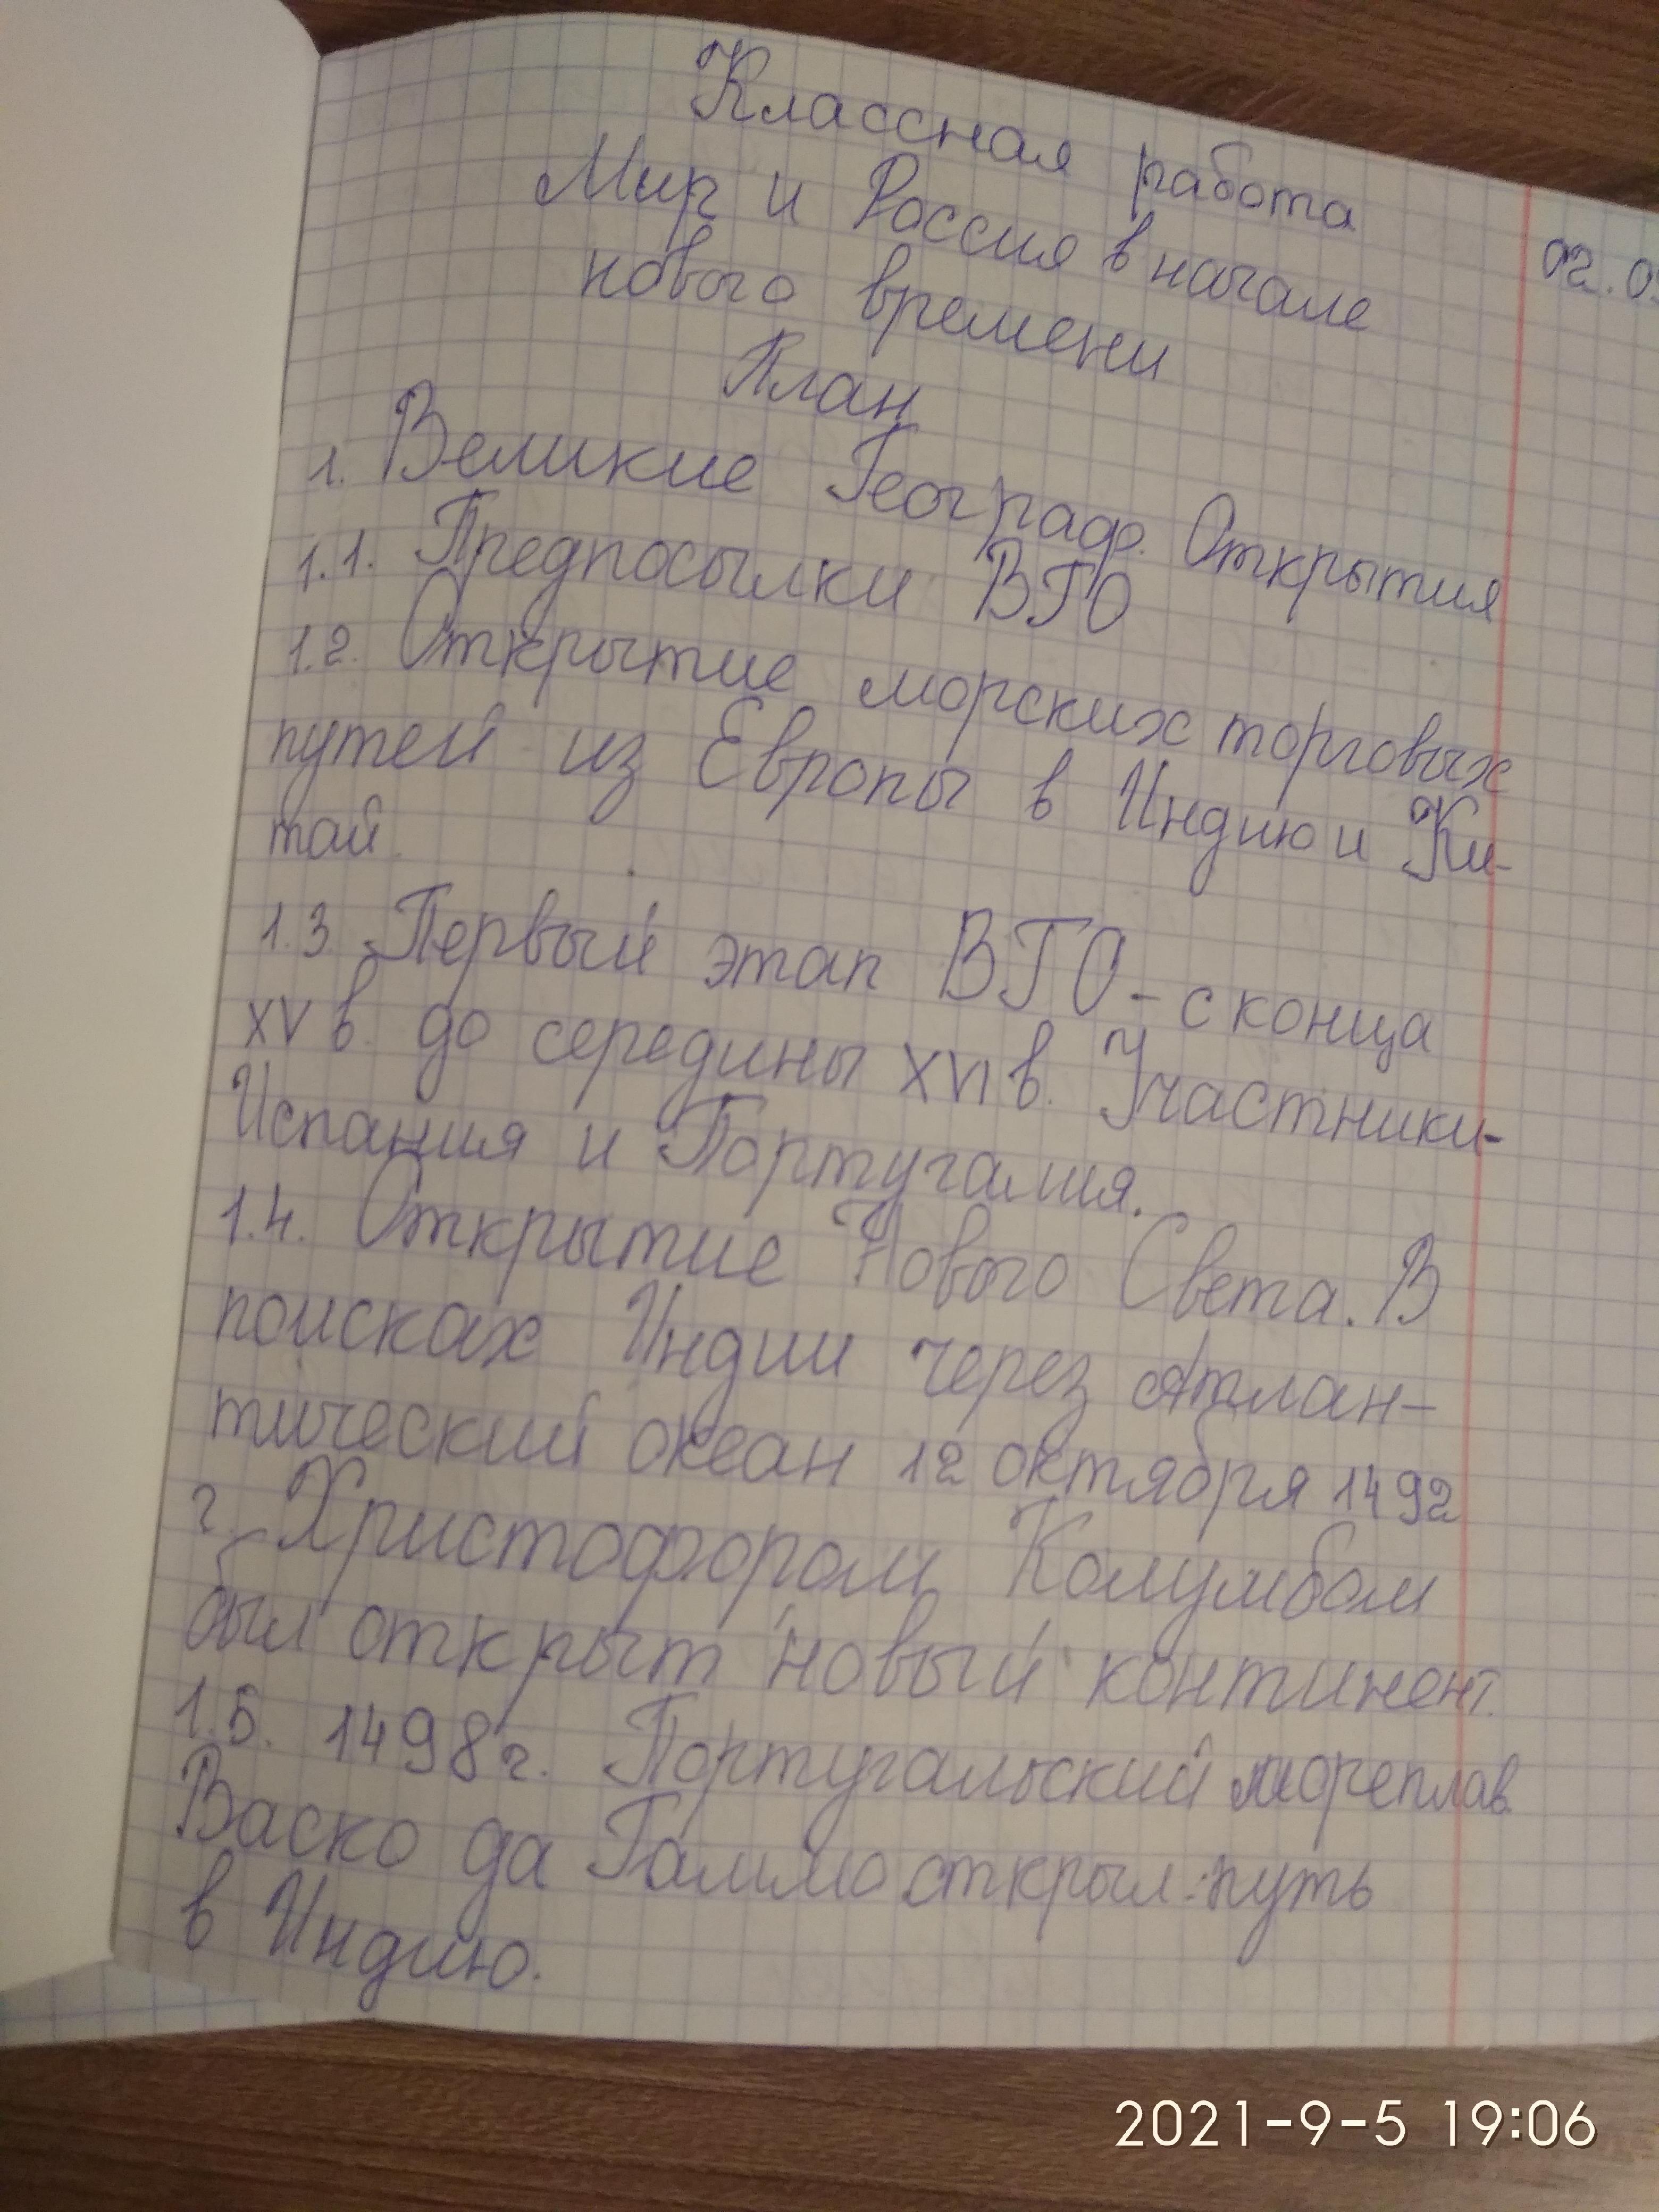 Классная работа
Мир и Россия в начале
02.0
нового времени
План
1. Великие Географ. Открытия
1.1. Предпосылки ВГО
1.2. Открытие морских торговых
путей из Европы в Индию и Ки-
тай.
1.3. Первый этап ВГО - с конца
XV в. до середины XVI в. Участники-
Испания и Португалия.
1.4. Открытие Нового Света. В
поисках Индии через Атлан-
тический океан 12 октября 1492
г. Христофором Колумбом
был открыт "новый" континент.
1.5. 1498г. Португальский мореплав.
Васко да Гаммо открыл путь
в Индию.
2021-9-5 19:06